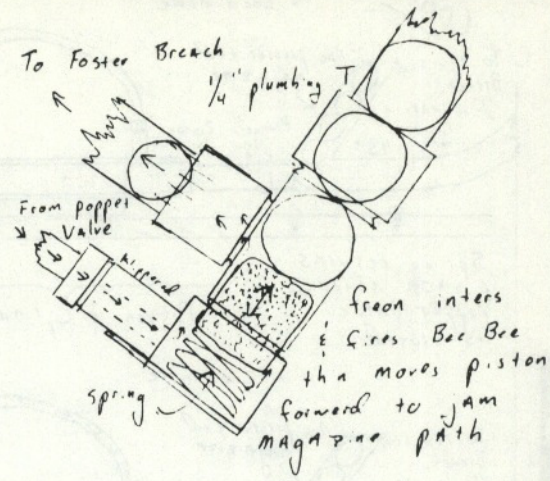 To Foster Breach
1/4 plumbing T
From poppet
Valve
Nippered
spring
freon inters
& fires Bee Bee
thn moves piston
forward to jAm
MAgAzine pAth